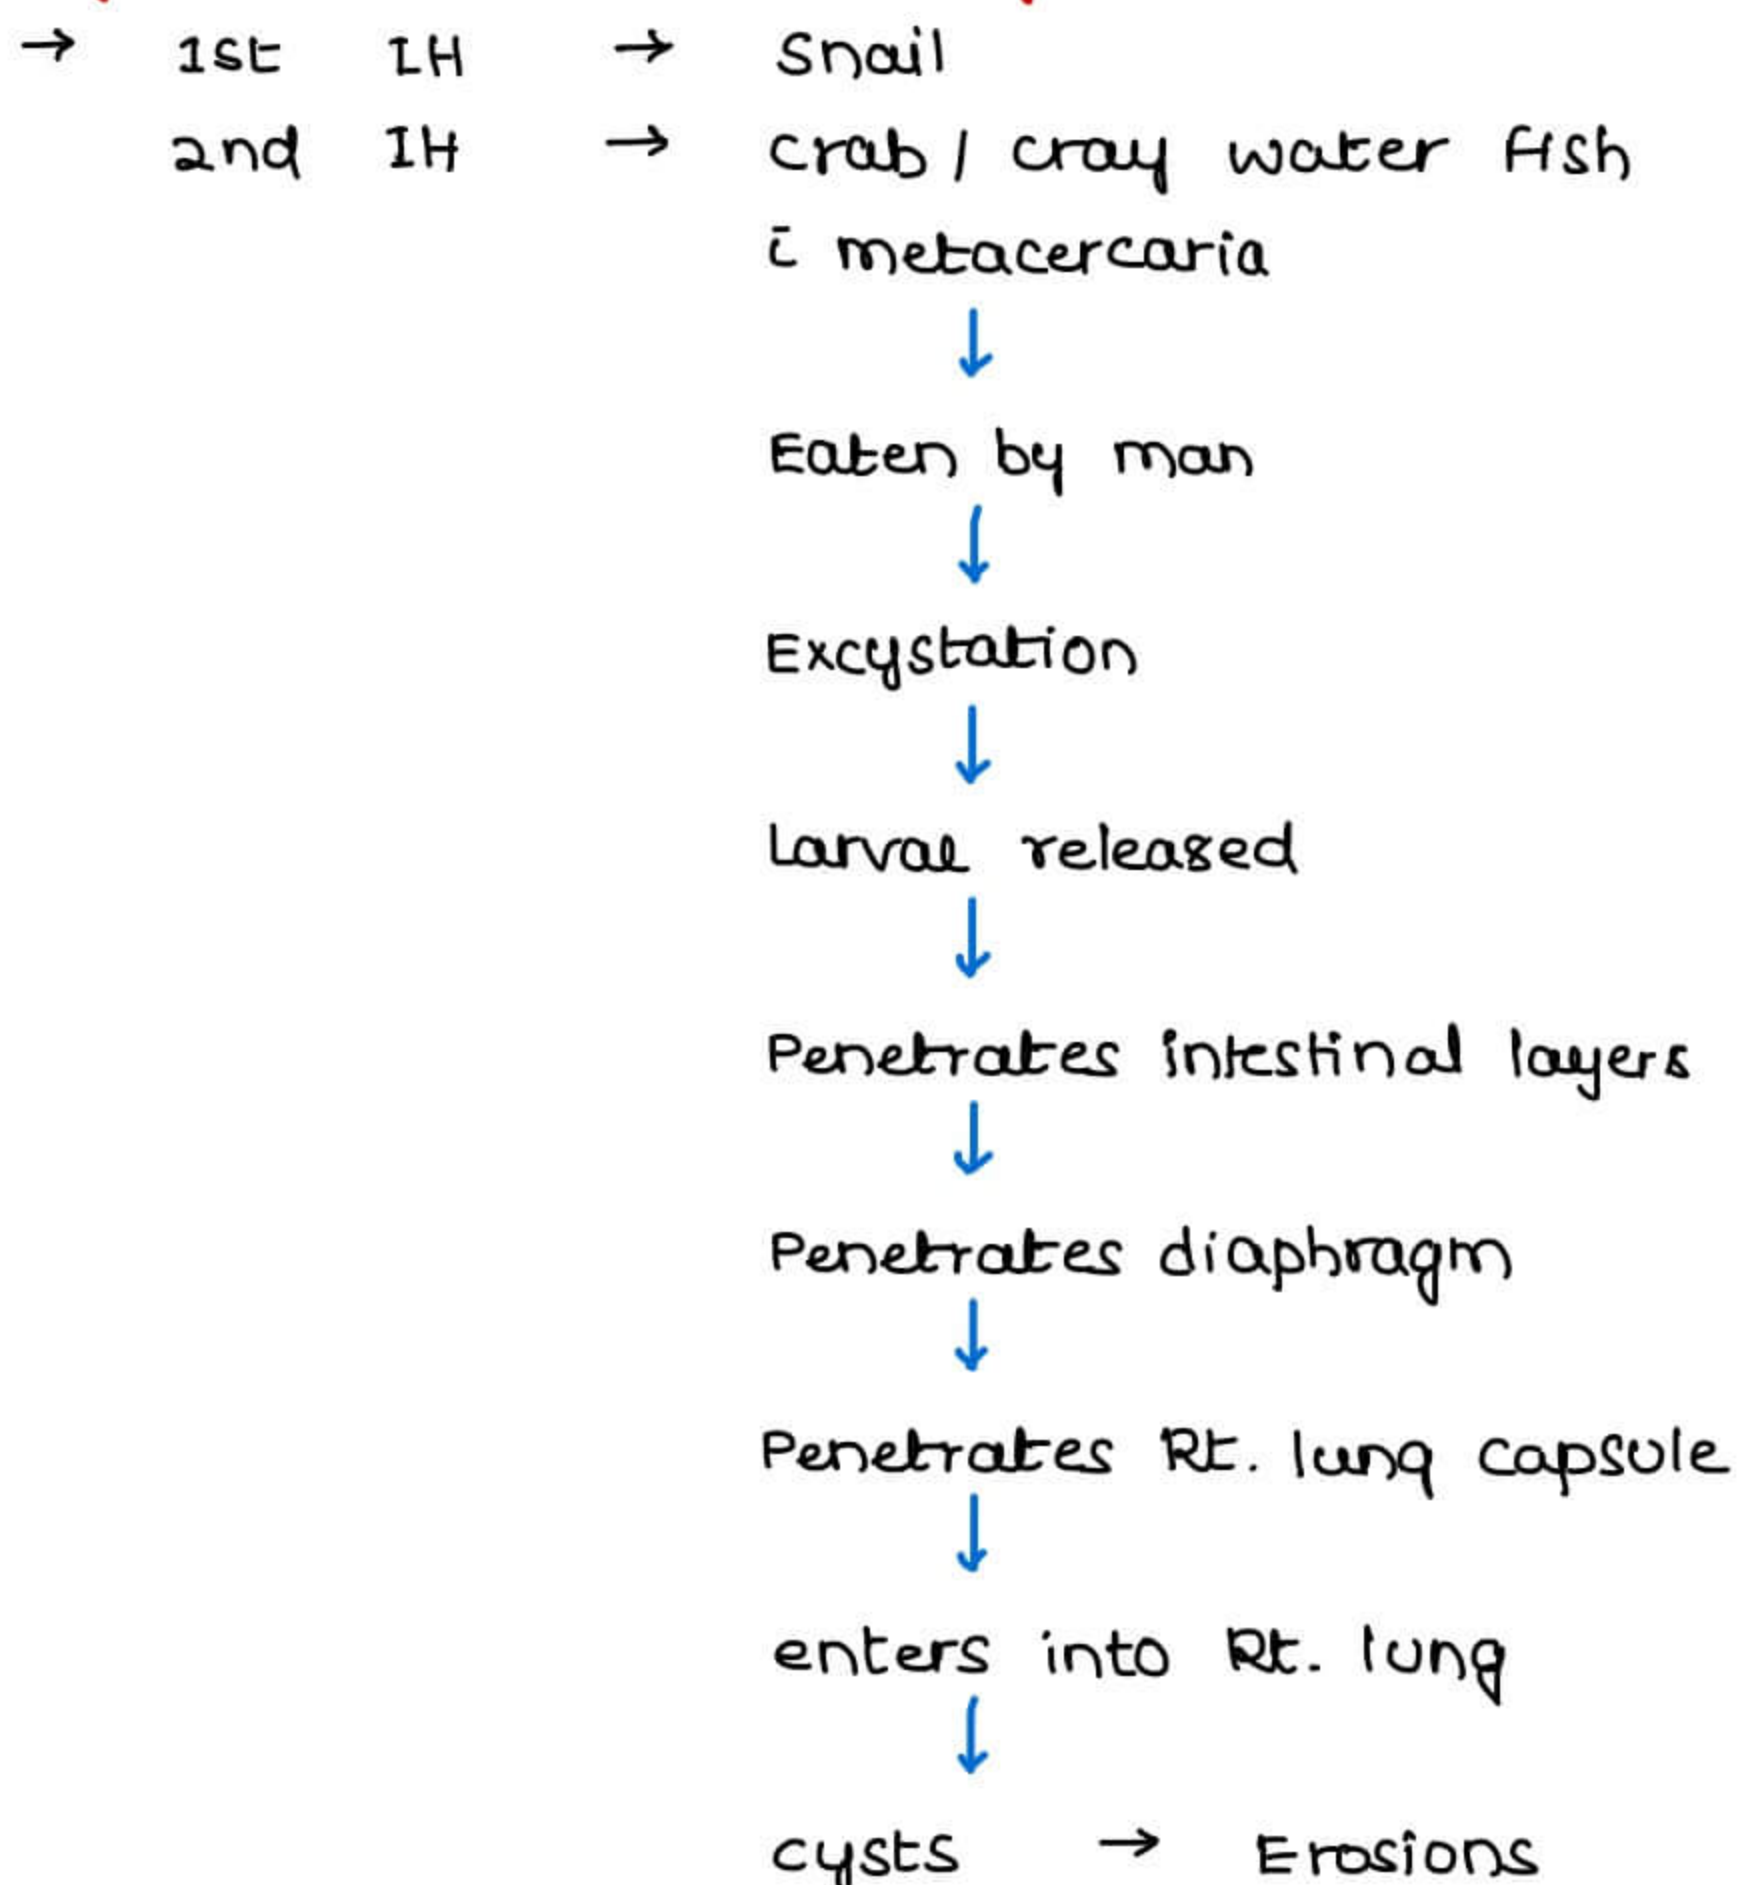 → 1st IH → Snail
2nd IH → crab / cray water fish
c̄ metacercaria
↓
Eaten by man
↓
Excystation
↓
Larvae released
↓
Penetrates intestinal layers
↓
Penetrates diaphragm
↓
Penetrates Rt. lung capsule
↓
enters into Rt. lung
↓
cysts → Erosions